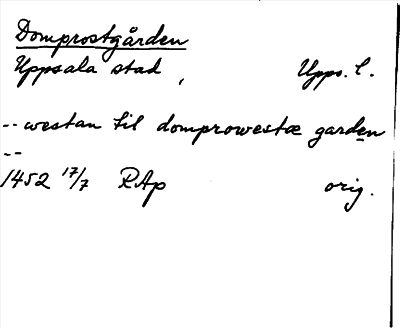 Domprostgården
Uppsala stad, Upps. l.
-- westan til domprowestæ garden
--
1452 17/7 RAp orig.